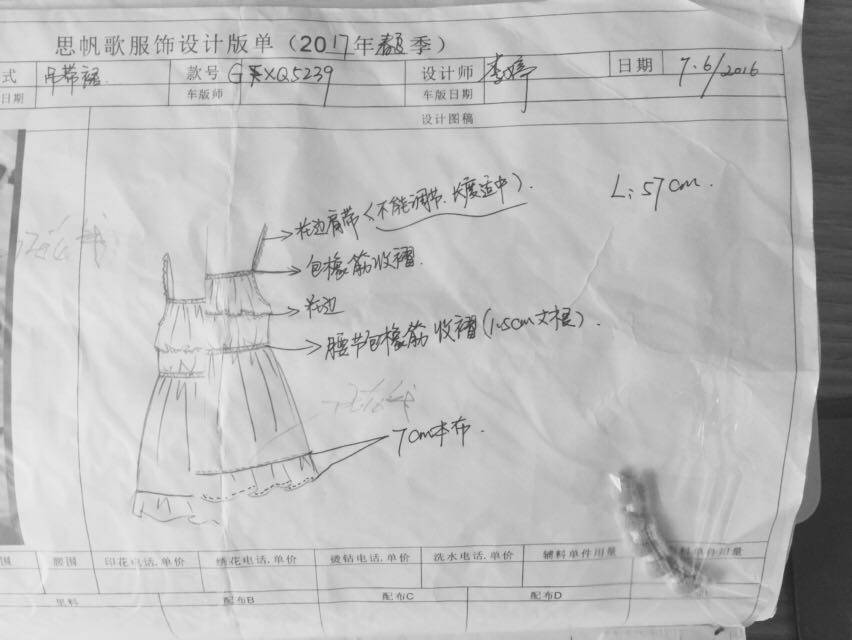 思帆歌服饰设计版单（2017年春夏季）
式 吊带裙 款号 G XQ5239 设计师 李婷 日期 7.6/2016
日期 车版师 车版日期
设计图稿
L: 57cm.
花边肩带（不能调节.长度适中）.
包橡筋收褶.
花边
腰节包橡筋收褶（1.5cm丈根）.
7cm本布.
围 腰围 印花电话.单价 绣花电话.单价 烫钻电话.单价 洗水电话.单价 辅料单件用量 料单件用量
里料 配布B 配布C 配布D